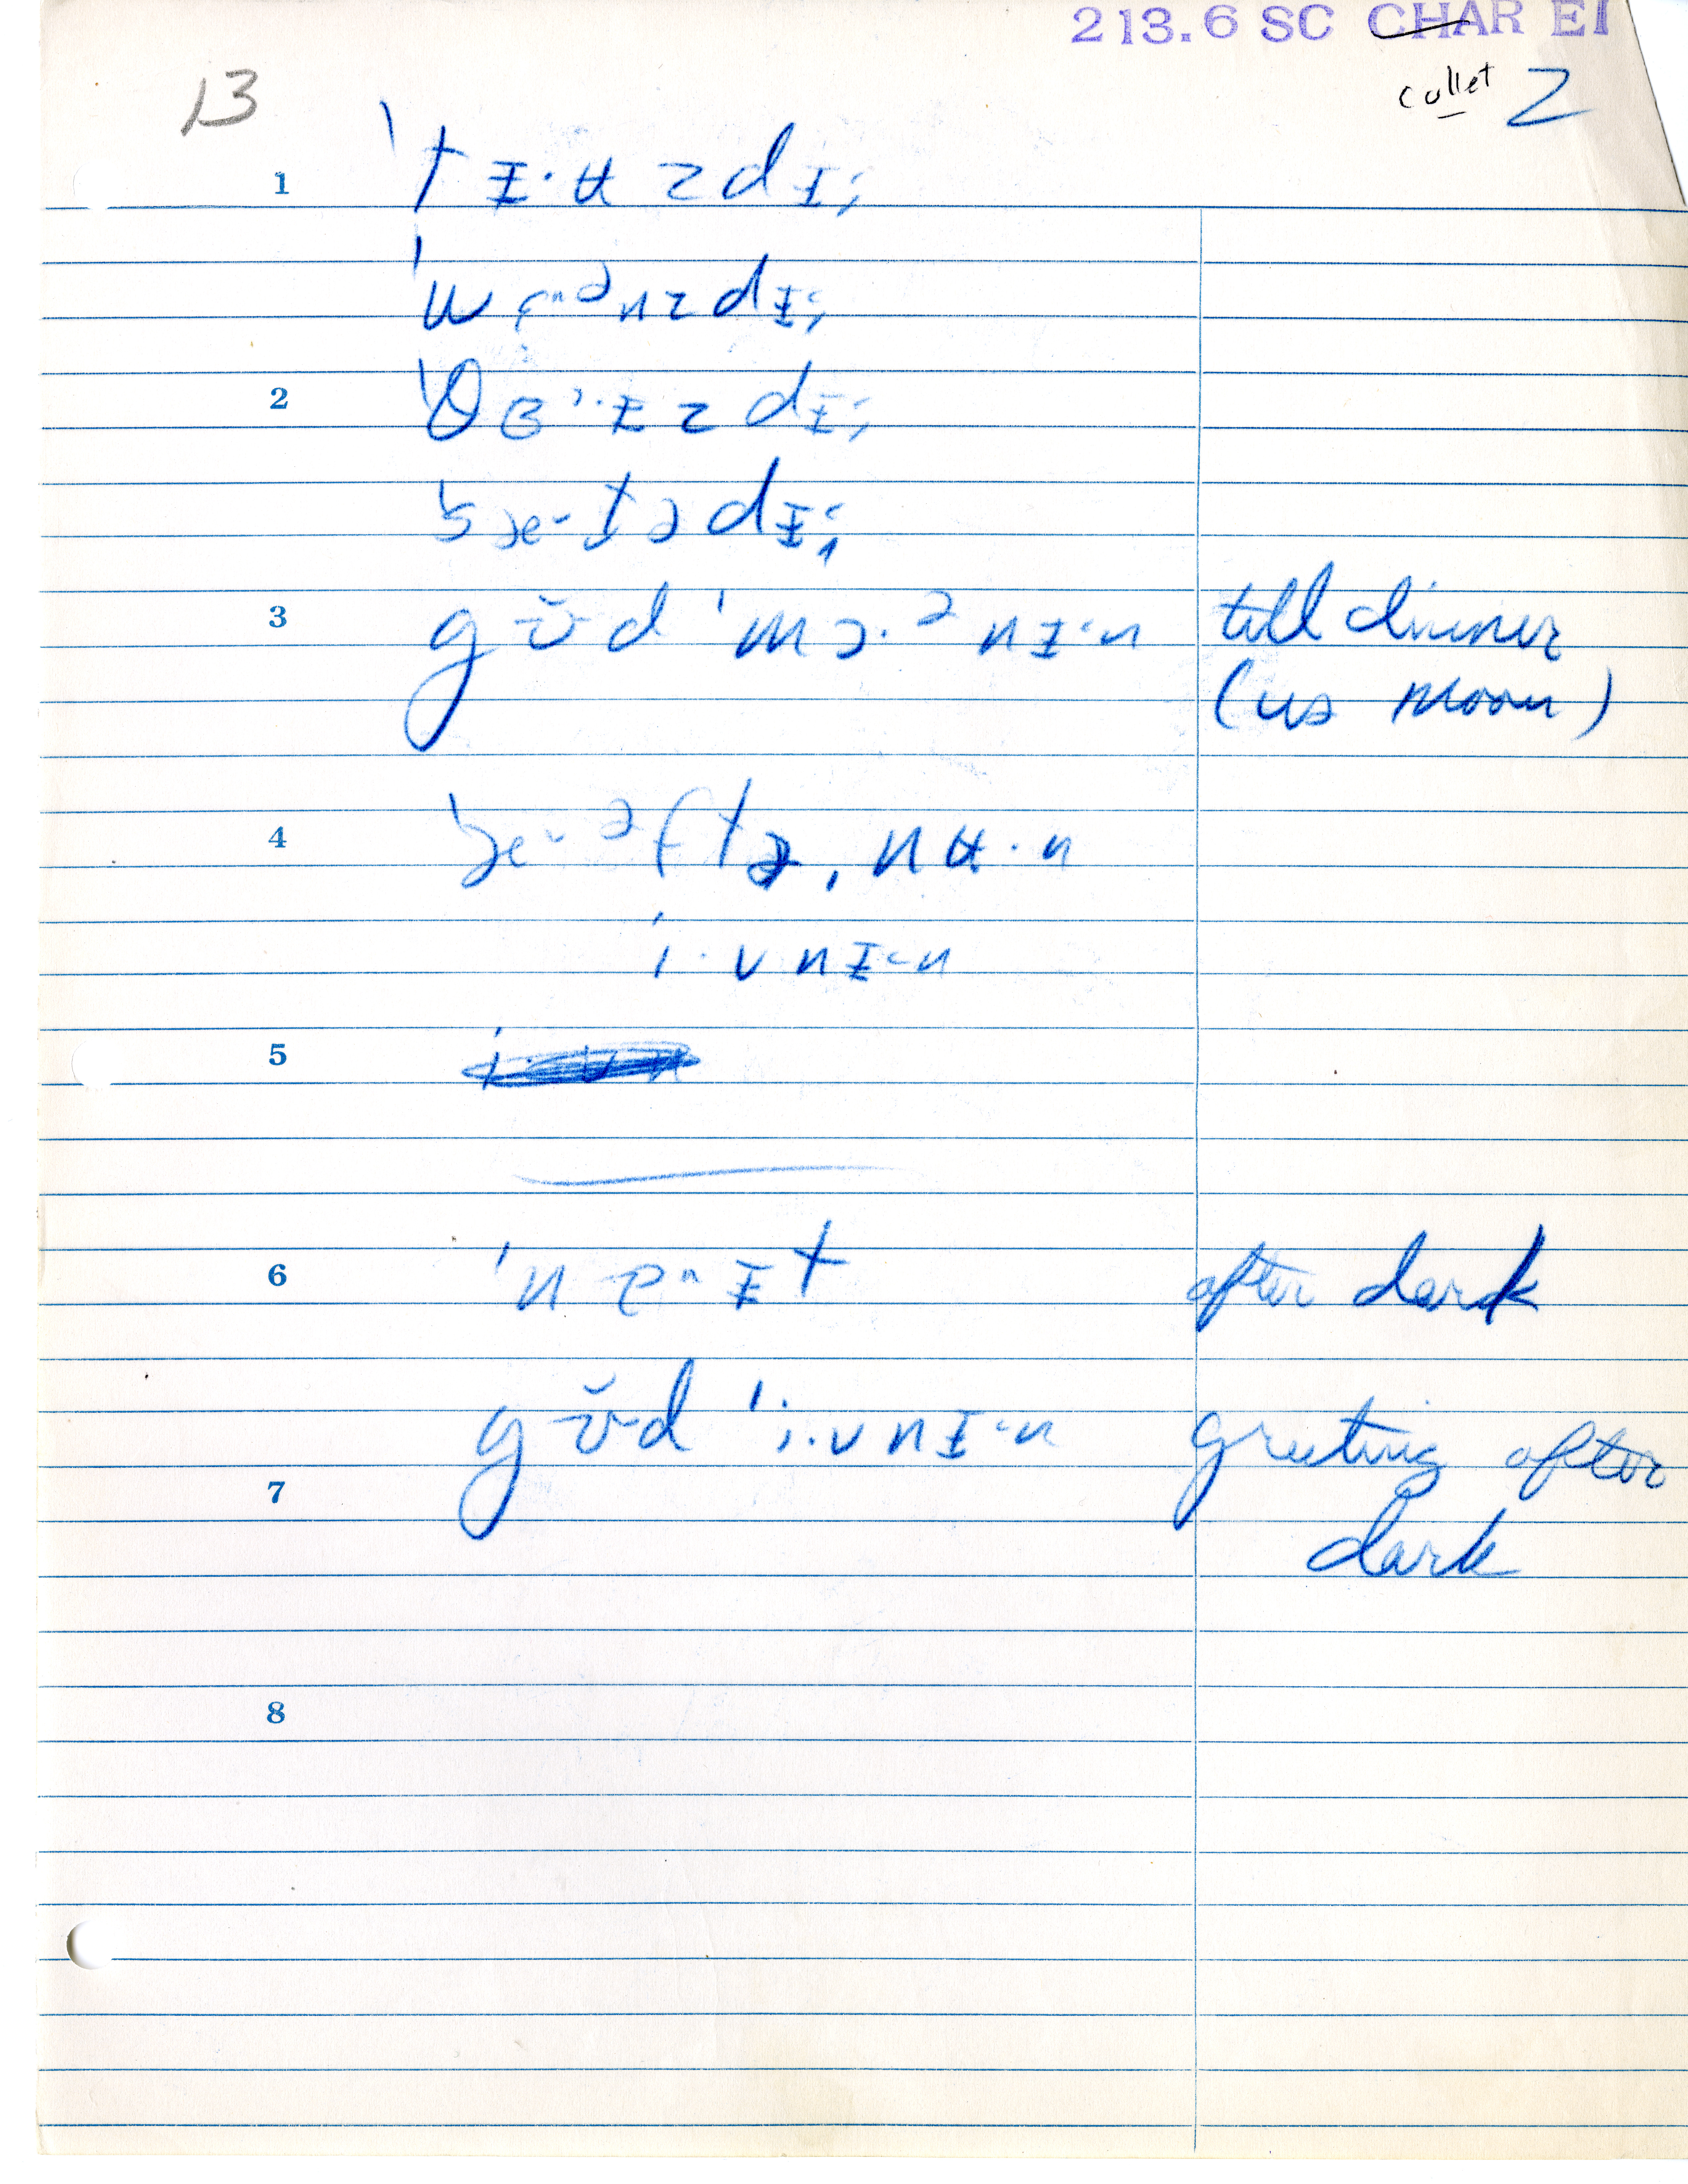 213.6 SC CHAR EI
Collet 2
13
1 ˈtᵻ·ʉzdᵻ;
ˈwɛ·ᵊnzdᵻ;
2 ˈθɜ·ᵻzdᵻ;
ˈsæ·tədᵻ;
3 gʊ̆d ˈmɔ·ᵊnᵻ·n till dinner
(us noon)
4 ˈæ·ᵊftəˌnʉ·n
i·vnᵻ·n
5
6 ˈnɐ·ᵻt after dark
gʊ̆d ˈi·vnᵻ·n greeting after
7 dark
8